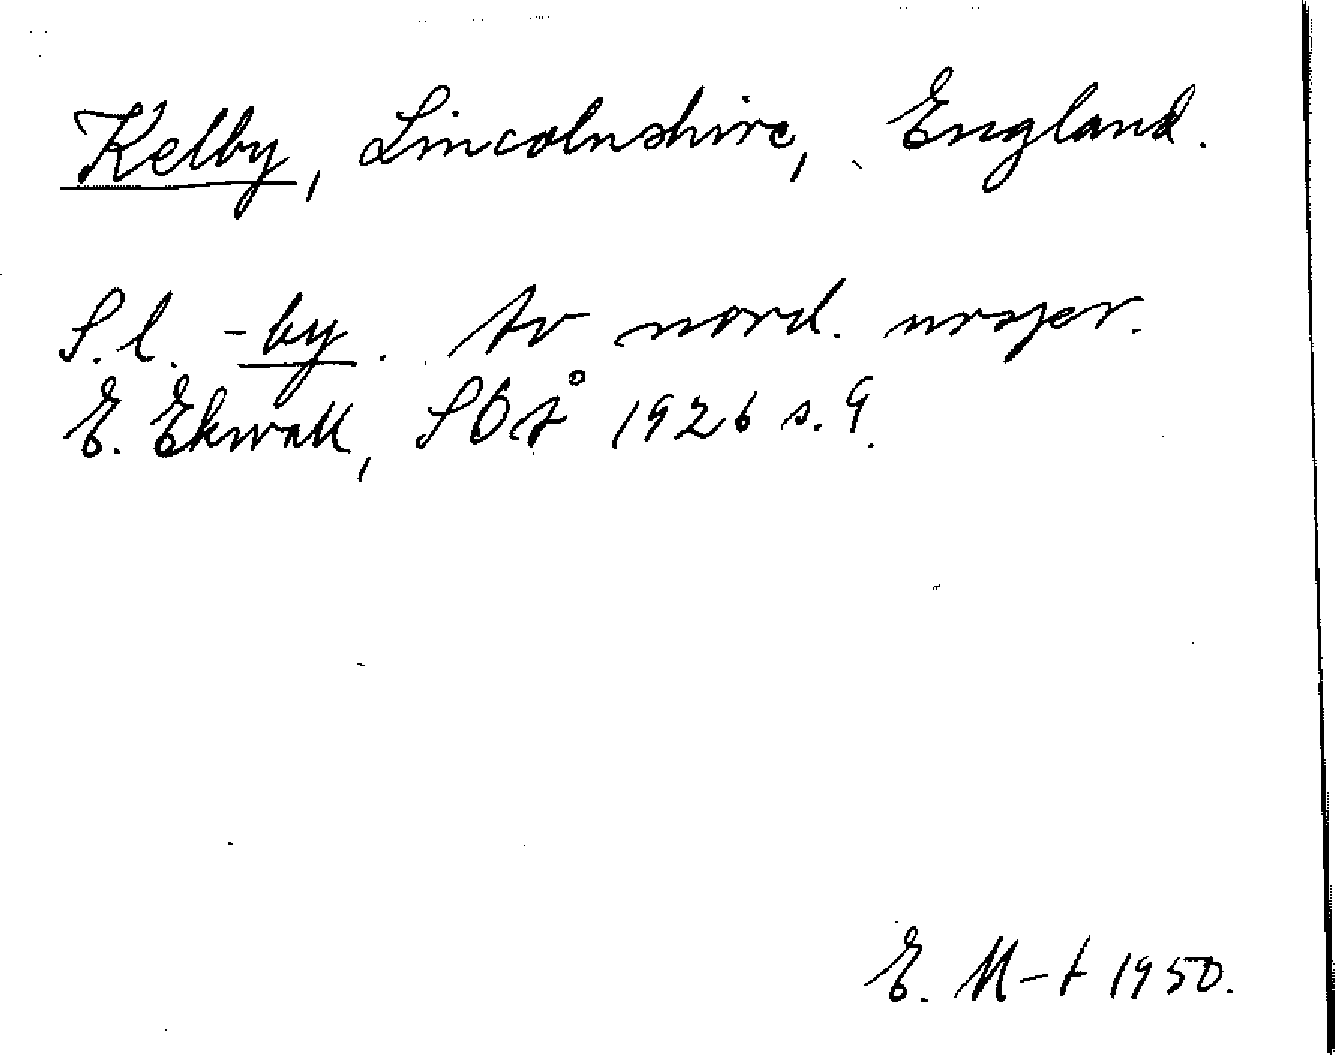 Kelby, Lincolnshire, England.
S.l. -by. Av nord. urspr.
E. Ekwall, SOÅ 1926 s. 9.
E. M-t 1950.